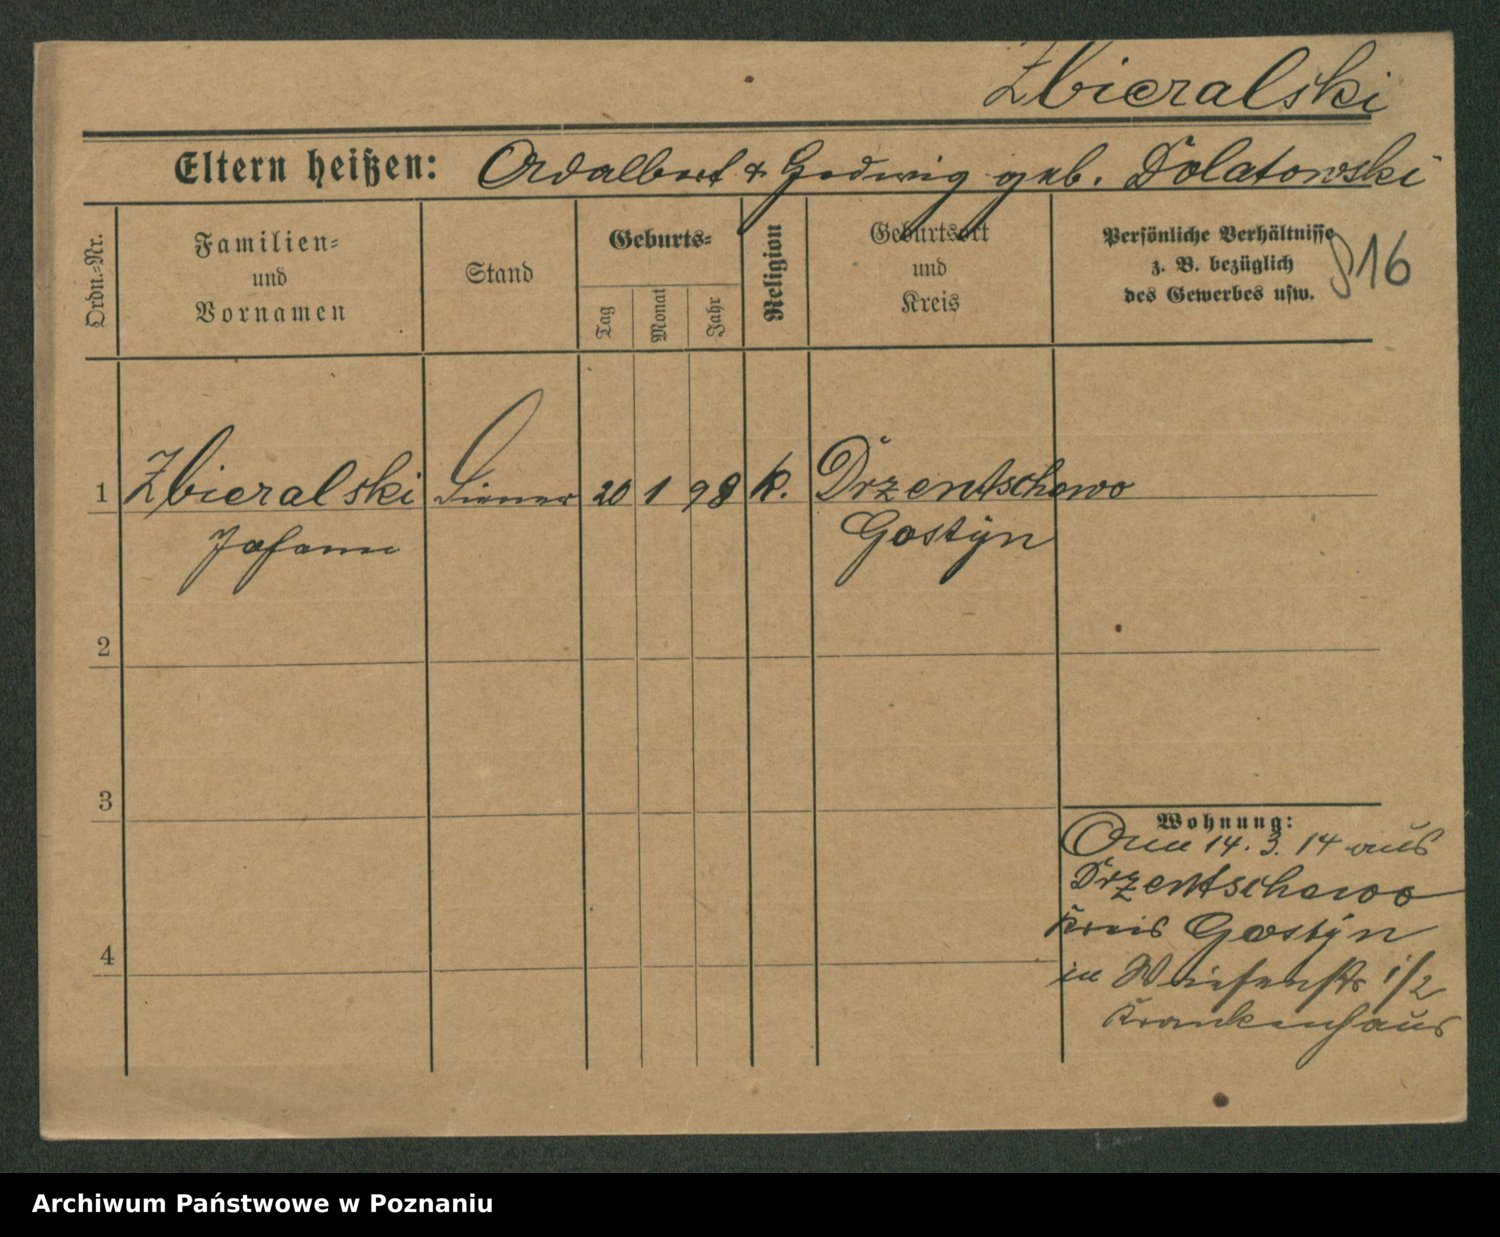 Zbieralski
Eltern heißen: Adalbert & Hedwig geb. Dolatowski
Ordn.-Nr.
Familien-
und
Vornamen
Stand
Geburts-
Tag
Monat
Jahr
Religion
Geburtsort
und
Kreis
Persönliche Verhältnisse
z. B. bezüglich
des Gewerbes usw.
816
1 Zbieralski Diener 20 1 98 k. Drzentschewo
Johann Gostyn
2
3
4
Wohnung:
14. 3. 14 aus
Drzentschewo
Kreis Gostyn
in Wiesenstr 1/2
Krankenhaus
Archiwum Państwowe w Poznaniu